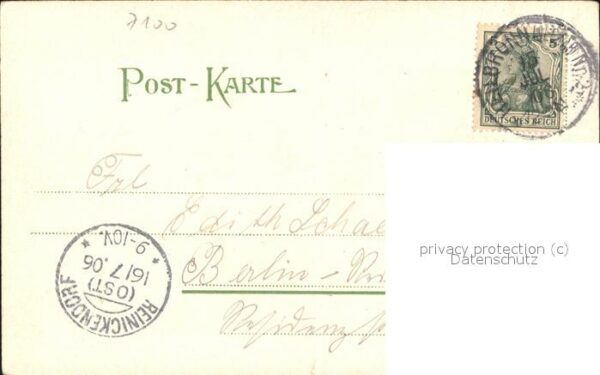 7100
POST-KARTE
5
DEUTSCHES REICH
HEILBRONN
Frl
Edith Schae
Berlin-
Residenz
REINICKENDORF
(OST)
16/7.06
* 9-10V. *
privacy protection (c)
Datenschutz